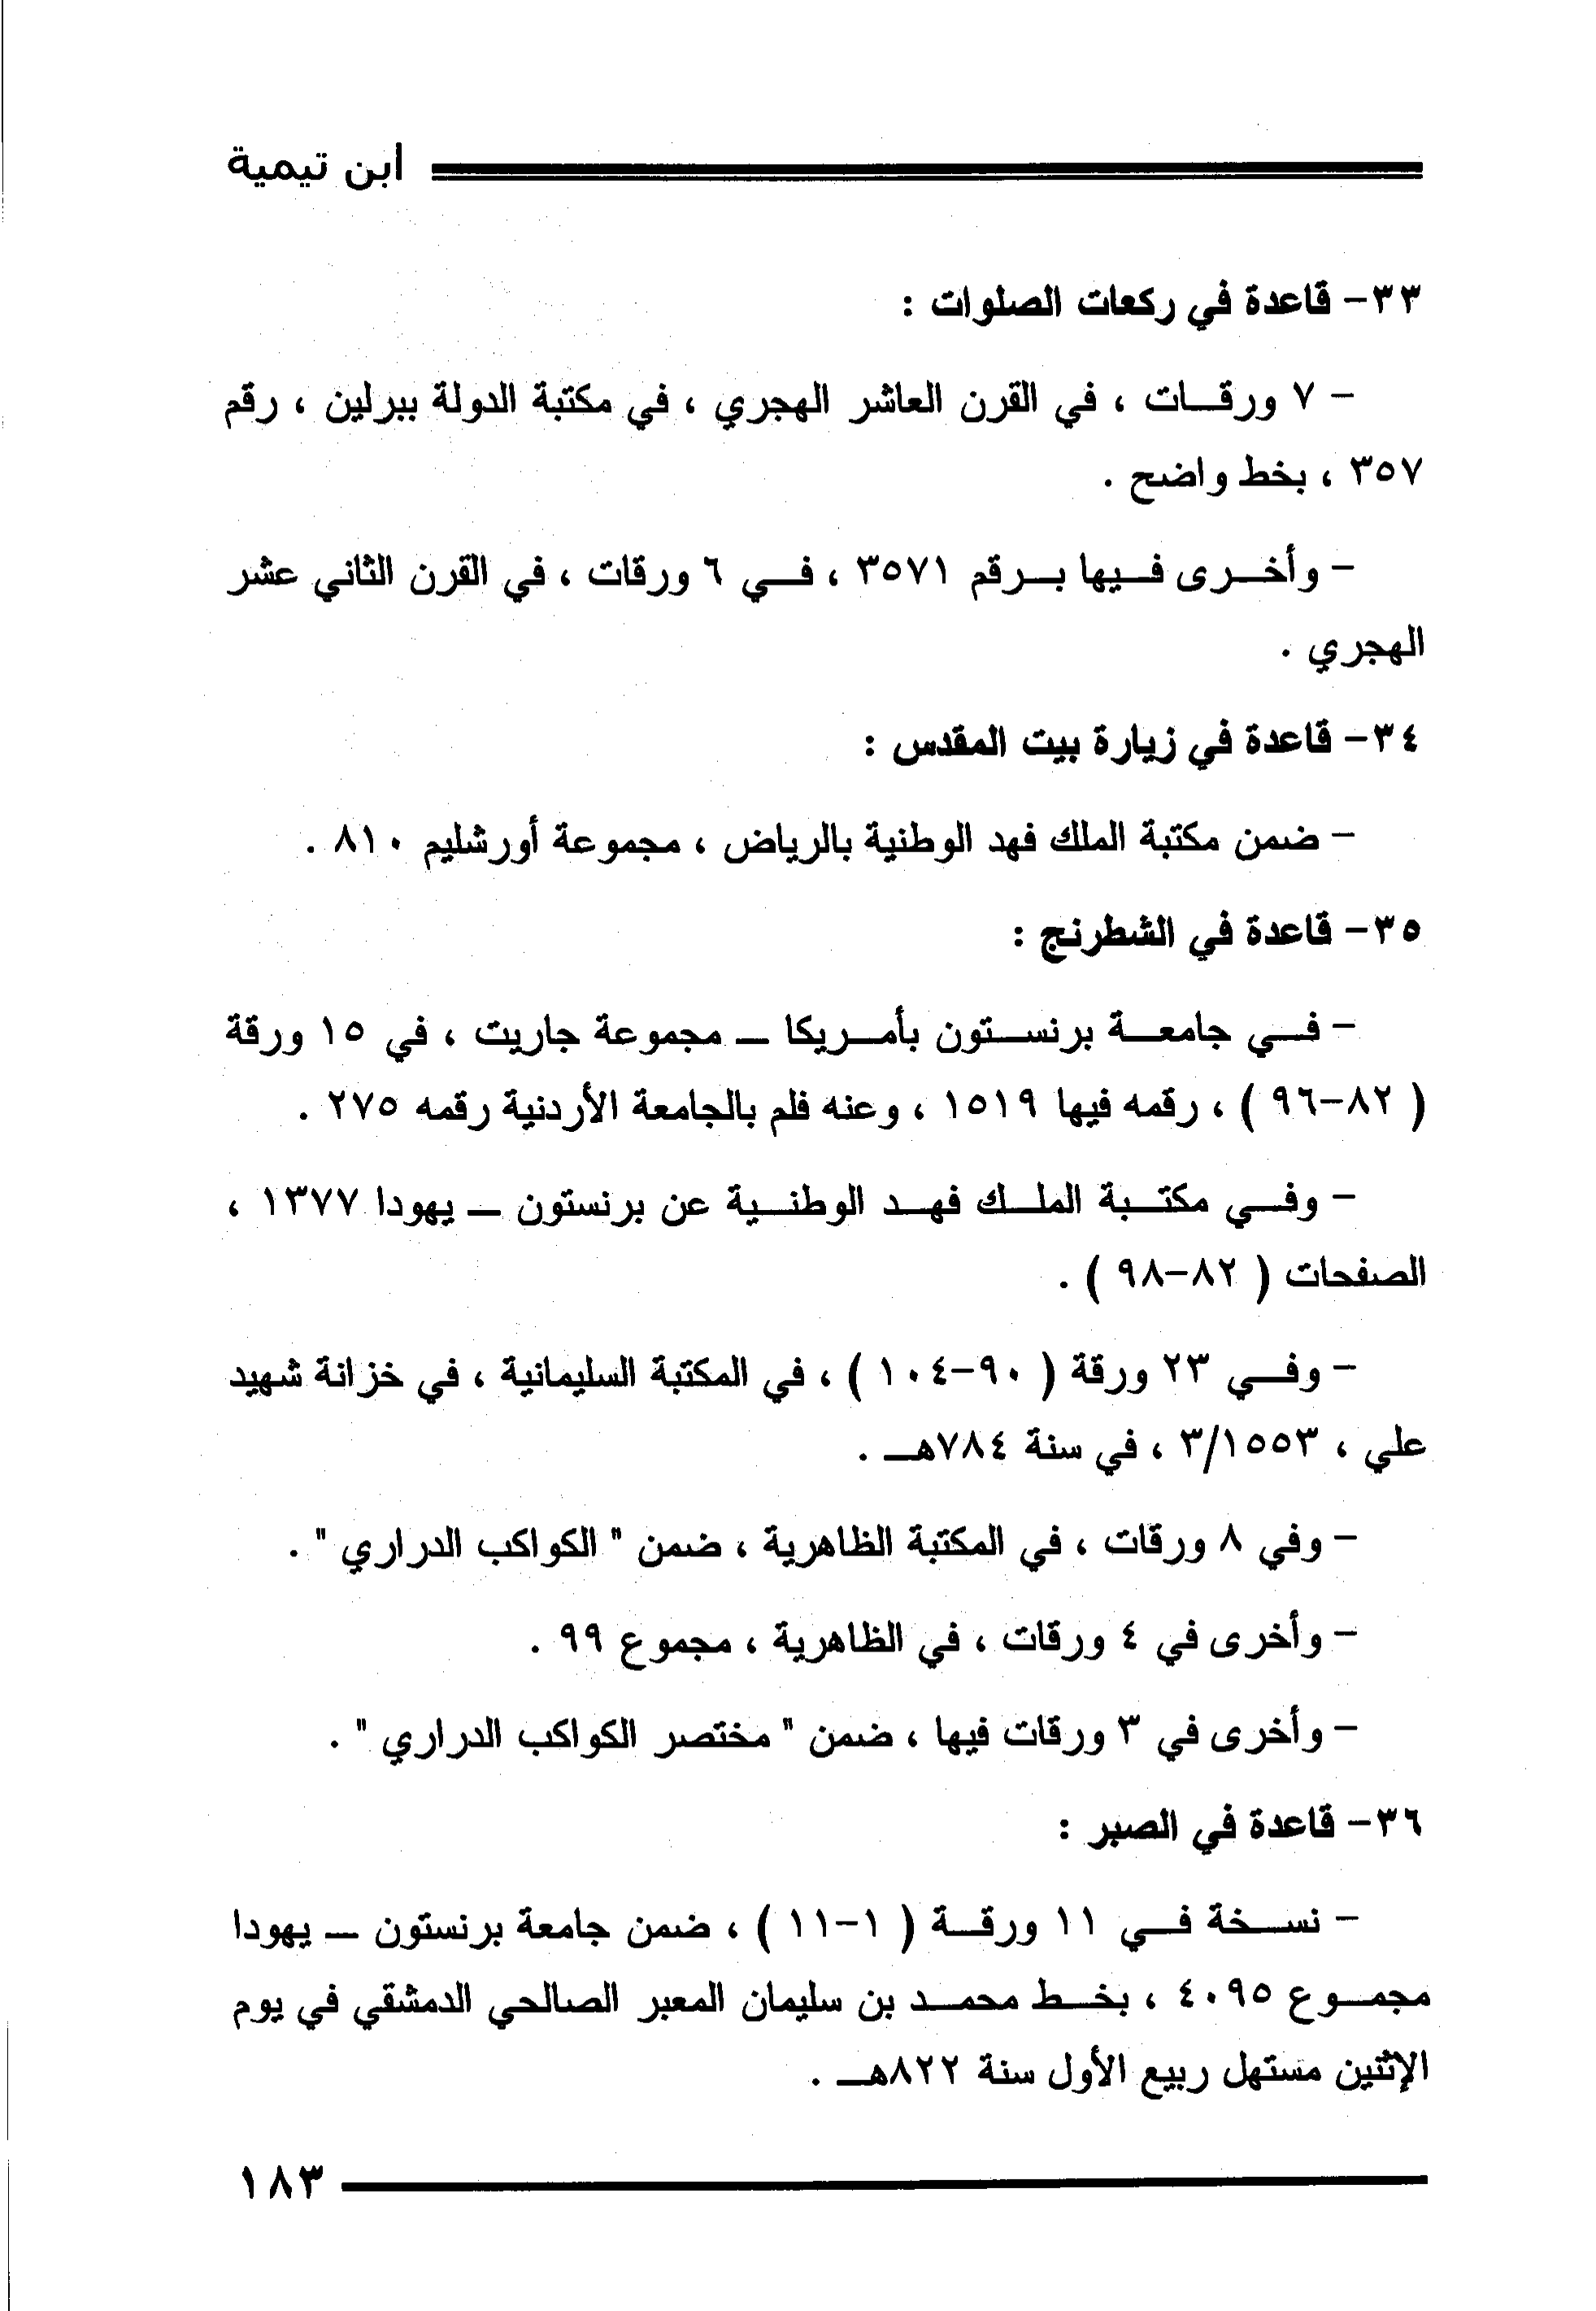 ابن تيمية
٣٣- قاعدة في ركعات الصلوات :
- ٧ ورقات ، في القرن العاشر الهجري ، في مكتبة الدولة ببرلين ، رقم
٣٥٧ ، بخط واضح .
- وأخرى فيها برقم ٣٥٧١ ، في ٦ ورقات ، في القرن الثاني عشر
الهجري .
٣٤- قاعدة في زيارة بيت المقدس :
- ضمن مكتبة الملك فهد الوطنية بالرياض ، مجموعة أورشليم ٨١٠ .
٣٥- قاعدة في الشطرنج :
- في جامعة برنستون بأمريكا – مجموعة جاريت ، في ١٥ ورقة
( ٨٢-٩٦ ) ، رقمه فيها ١٥١٩ ، وعنه فلم بالجامعة الأردنية رقمه ٢٧٥ .
- وفي مكتبة الملك فهد الوطنية عن برنستون – يهودا ١٣٧٧ ،
الصفحات ( ٨٢-٩٨ ) .
- وفي ٢٣ ورقة ( ٩٠-١٠٤ ) ، في المكتبة السليمانية ، في خزانة شهيد
علي ، ٣/١٥٥٣ ، في سنة ٧٨٤هـ .
- وفي ٨ ورقات ، في المكتبة الظاهرية ، ضمن " الكواكب الدراري " .
- وأخرى في ٤ ورقات ، في الظاهرية ، مجموع ٩٩ .
- وأخرى في ٣ ورقات فيها ، ضمن " مختصر الكواكب الدراري " .
٣٦- قاعدة في الصبر :
- نسخة في ١١ ورقة ( ١-١١ ) ، ضمن جامعة برنستون – يهودا
مجموع ٤٠٩٥ ، بخط محمد بن سليمان المعبر الصالحي الدمشقي في يوم
الإثنين مستهل ربيع الأول سنة ٨٢٢هـ .
١٨٣